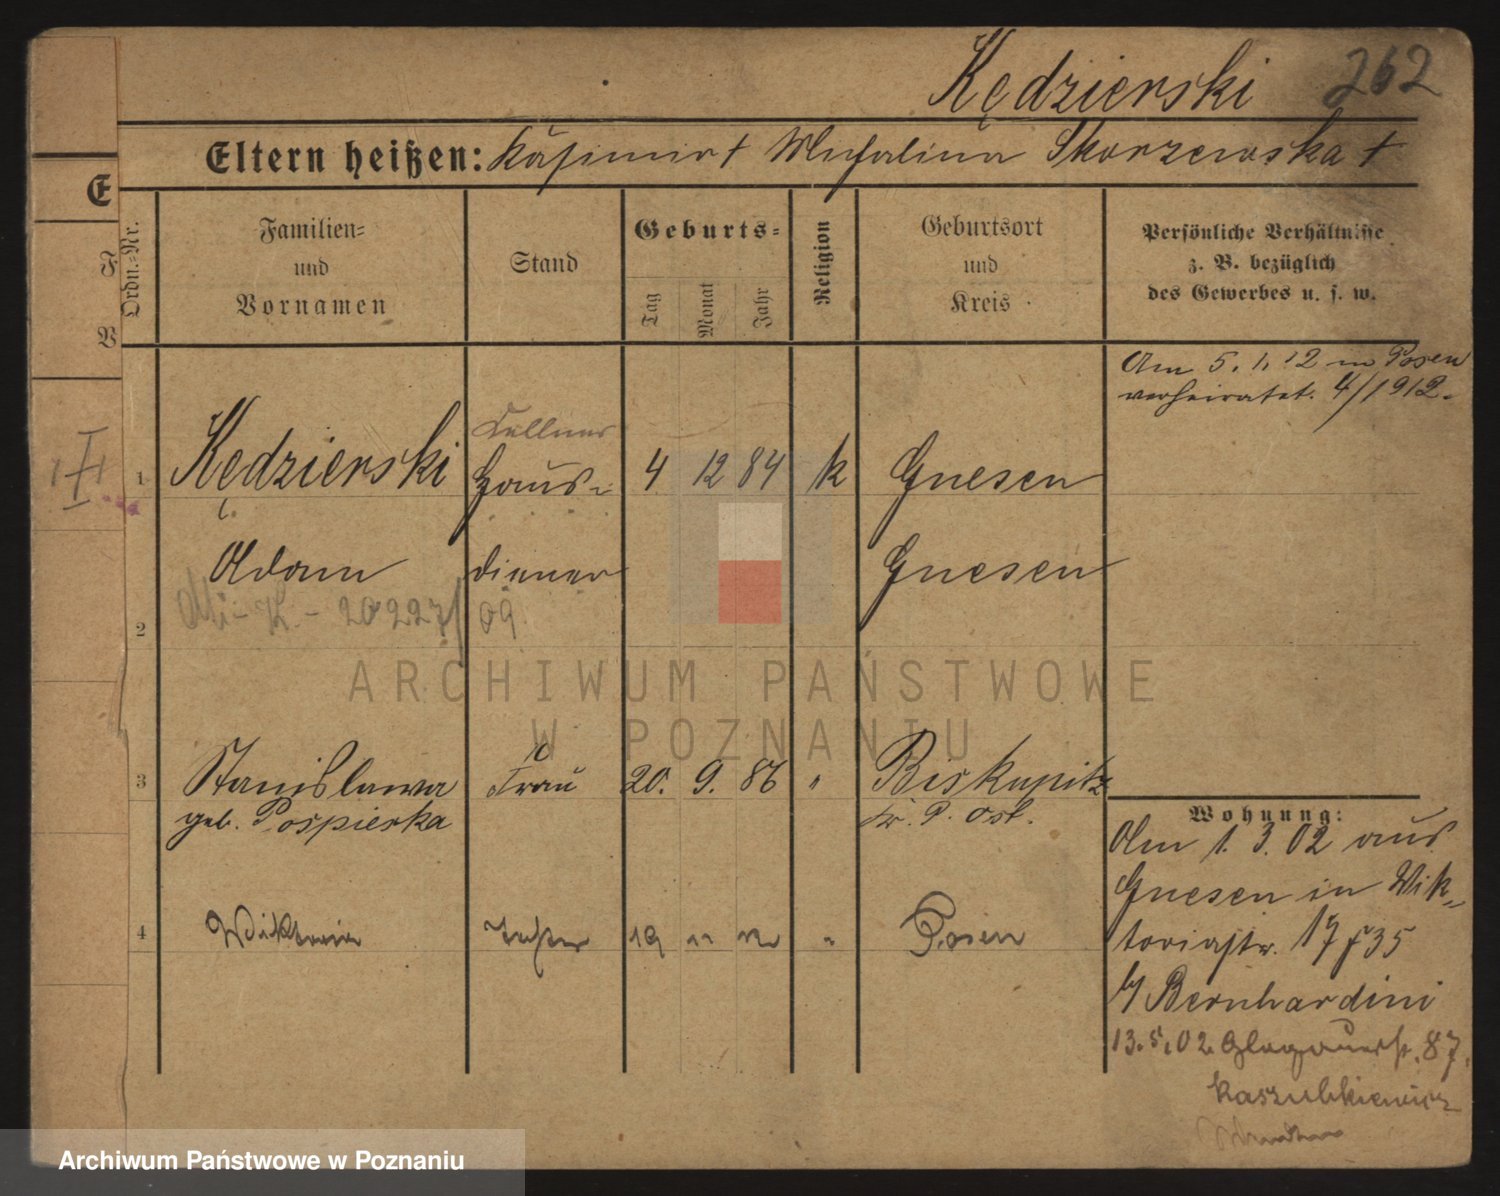 Kędzierski 262
Eltern heißen: Kasimir † Michalina Skorzewska †
E
F
V
Ordn.-Nr.
Familien-
und
Vornamen
Stand
Geburts-
Tag
Monat
Jahr
Religion
Geburtsort
und
Kreis
Persönliche Verhältnisse
z. B. bezüglich
des Gewerbes u. s. w.
Am 5. 1. 12 in Posen
verheiratet. 4/1912.
Kellner
1 Kędzierski Haus- 4 12 84 k Gnesen
Adam diener Gnesen
2 Mi-K.-20227/09
3 Stanislawa Frau 20. 9. 86 " Biskupitz
geb. Pospieska Kr. P. Ost.
4 Wiktoria Tochter 19 11 12 " Posen
Wohnung:
Am 1. 3. 02 aus
Gnesen in Wik-
toriastr. 17 35
b/ Bernhardini
13. 5. 02 Glogauerstr. 87.
Kaszubkiewicz
ARCHIWUM PAŃSTWOWE
W POZNANIU
Archiwum Państwowe w Poznaniu